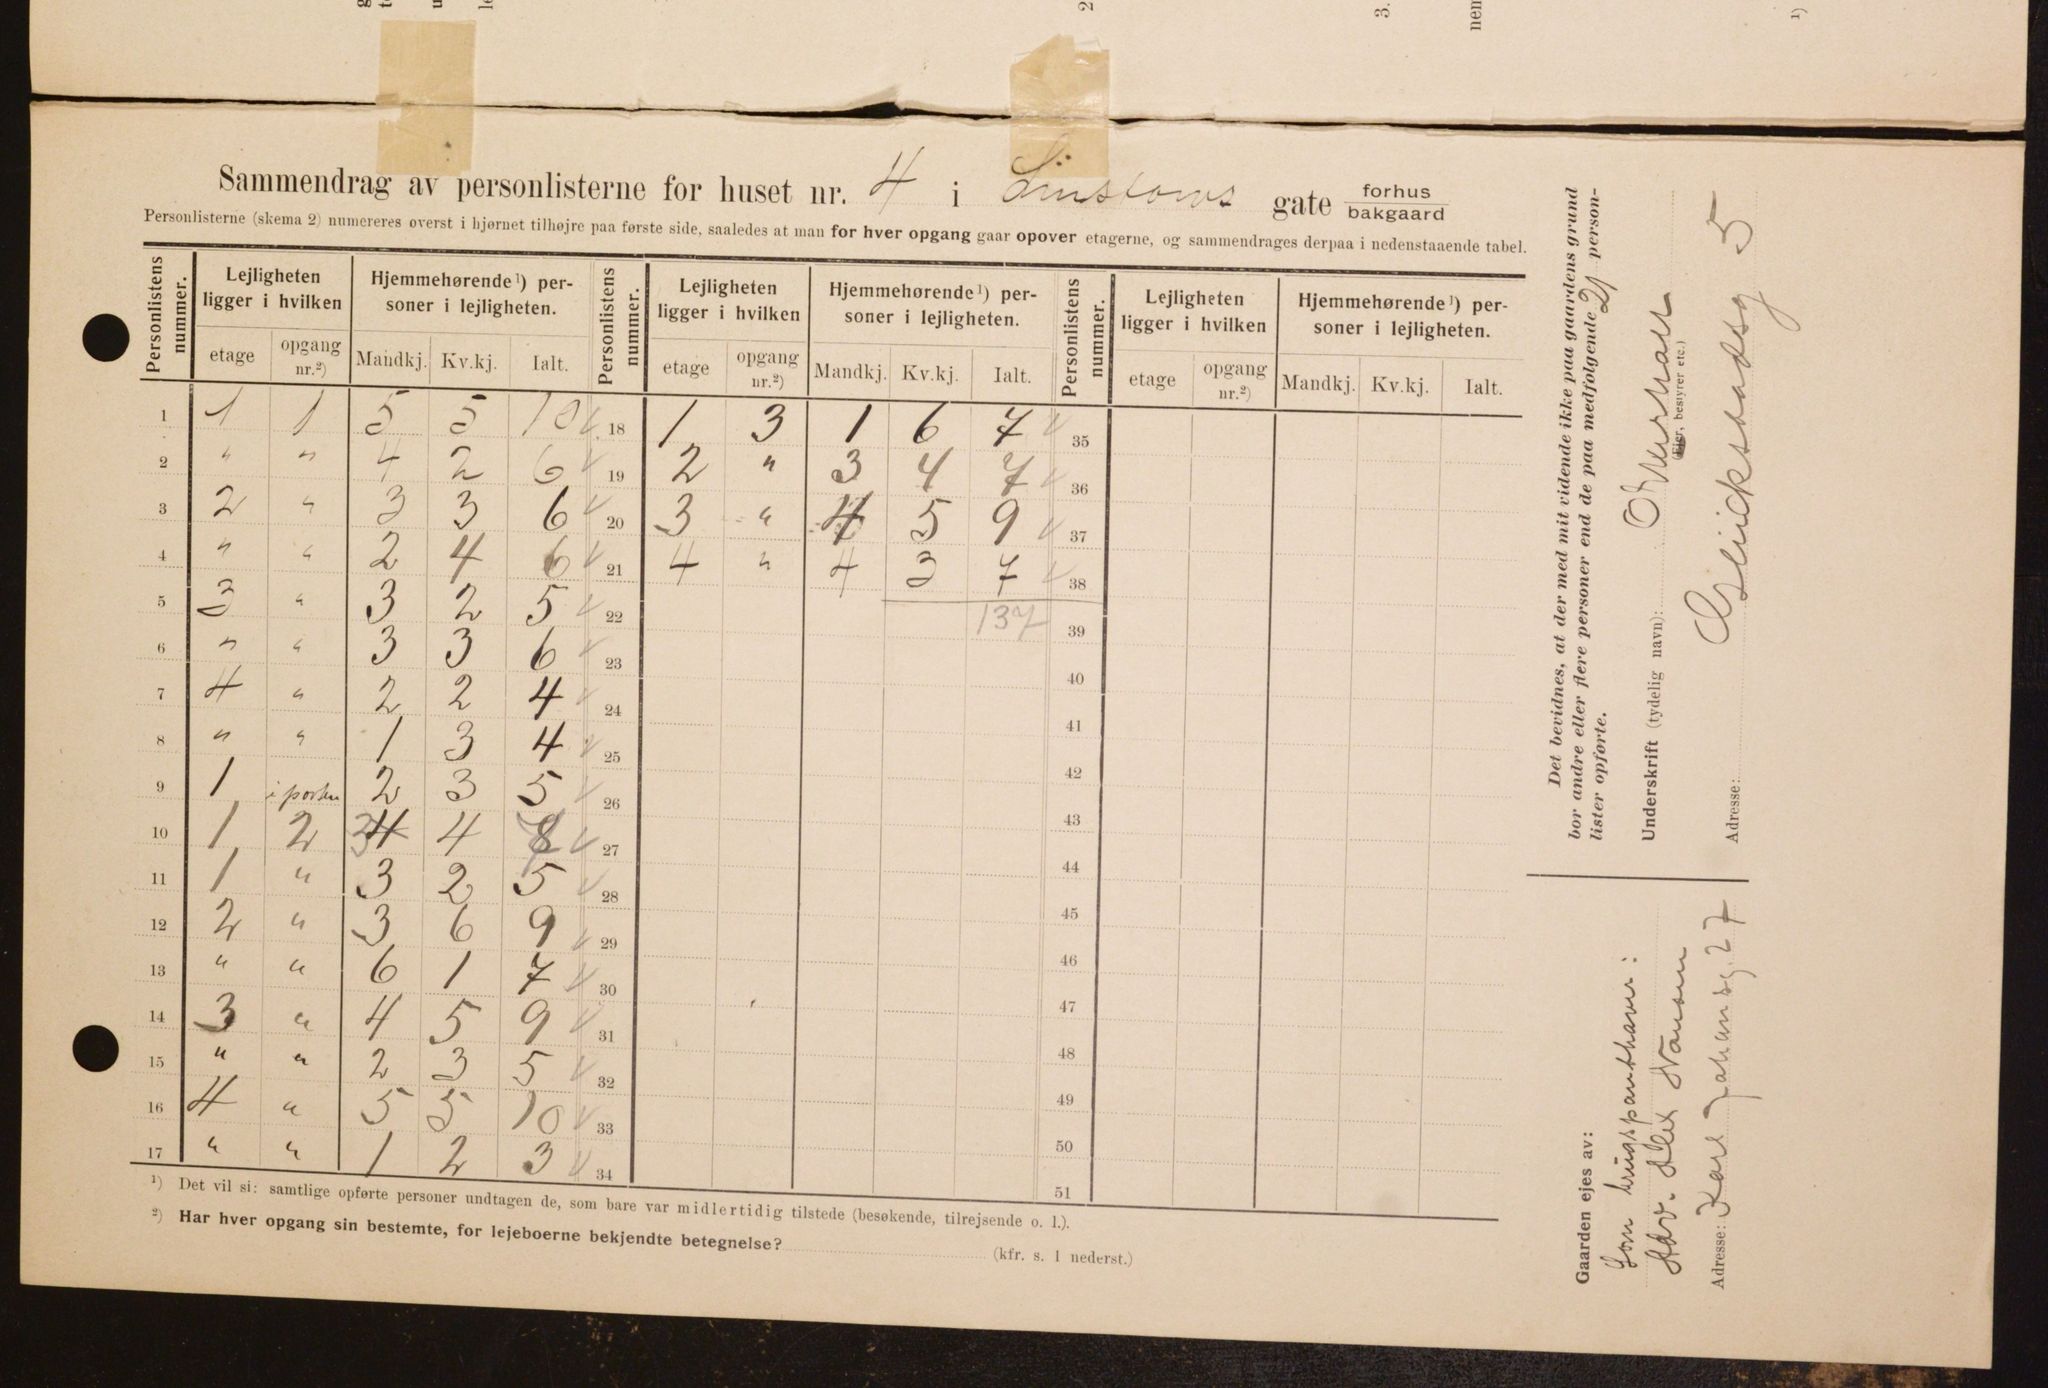 Sammendrag av personlisterne for huset nr. 4 i Linstows gate forhus bakgaard
Personlisterne (skema 2) numereres øverst i hjørnet tilhøjre paa første side, saaledes at man for hver opgang gaar opover etagerne, og sammendrages derpaa i nedenstaaende tabel.
Personlistens nummer. Lejligheten ligger i hvilken Hjemmehørende¹) personer i lejligheten. Personlistens nummer. Lejligheten ligger i hvilken Hjemmehørende¹) personer i lejligheten. Personlistens nummer. Lejligheten ligger i hvilken Hjemmehørende¹) personer i lejligheten.
etage opgang nr.²) Mandkj. Kv.kj. Ialt. etage opgang nr.²) Mandkj. Kv.kj. Ialt. etage opgang nr.²) Mandkj. Kv.kj. Ialt.
1 1 1 5 5 10 18 1 3 1 6 7 35
2 " " 4 2 6 19 2 " 3 4 7 36
3 2 " 3 3 6 20 3 " 4 5 9 37
4 " " 2 4 6 21 4 " 4 3 7 38
5 3 " 3 2 5 22 137 39
6 " " 3 3 6 23 40
7 4 " 2 2 4 24 41
8 " " 1 3 4 25 42
9 1 i porten 2 3 5 26 43
10 1 2 3 4 4 7 27 44
11 1 " 3 2 5 28 45
12 2 " 3 6 9 29 46
13 " " 6 1 7 30 47
14 3 " 4 5 9 31 48
15 " " 2 3 5 32 49
16 4 " 5 5 10 33 50
17 " " 1 2 3 34 51
¹) Det vil si: samtlige opførte personer undtagen de, som bare var midlertidig tilstede (besøkende, tilrejsende o. l.).
²) Har hver opgang sin bestemte, for lejeboerne bekjendte betegnelse?
(kfr. s. 1 nederst.)
Det bevidnes, at der med mit vidende ikke paa gaardens grund
bor andre eller flere personer end de paa medfølgende 21 person-
lister opførte.
Underskrift (tydelig navn):
(Ejer, bestyrer etc.)
Adresse: Glücksstadsg 5
Gaarden ejes av:
Som brugspanthaver:
Adv. Alex Nansen
Adresse: Karl Johansg. 27